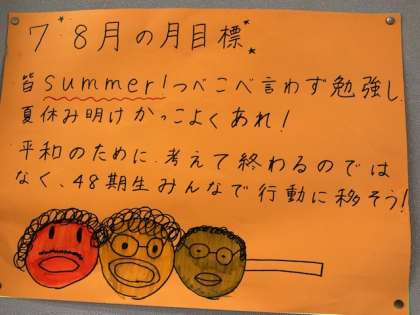 7・8月の月目標
皆summer!つべこべ言わず勉強し
夏休み明けかっこよくあれ!
平和のために、考えて終わるのでは
なく、48期生みんなで行動に移そう!